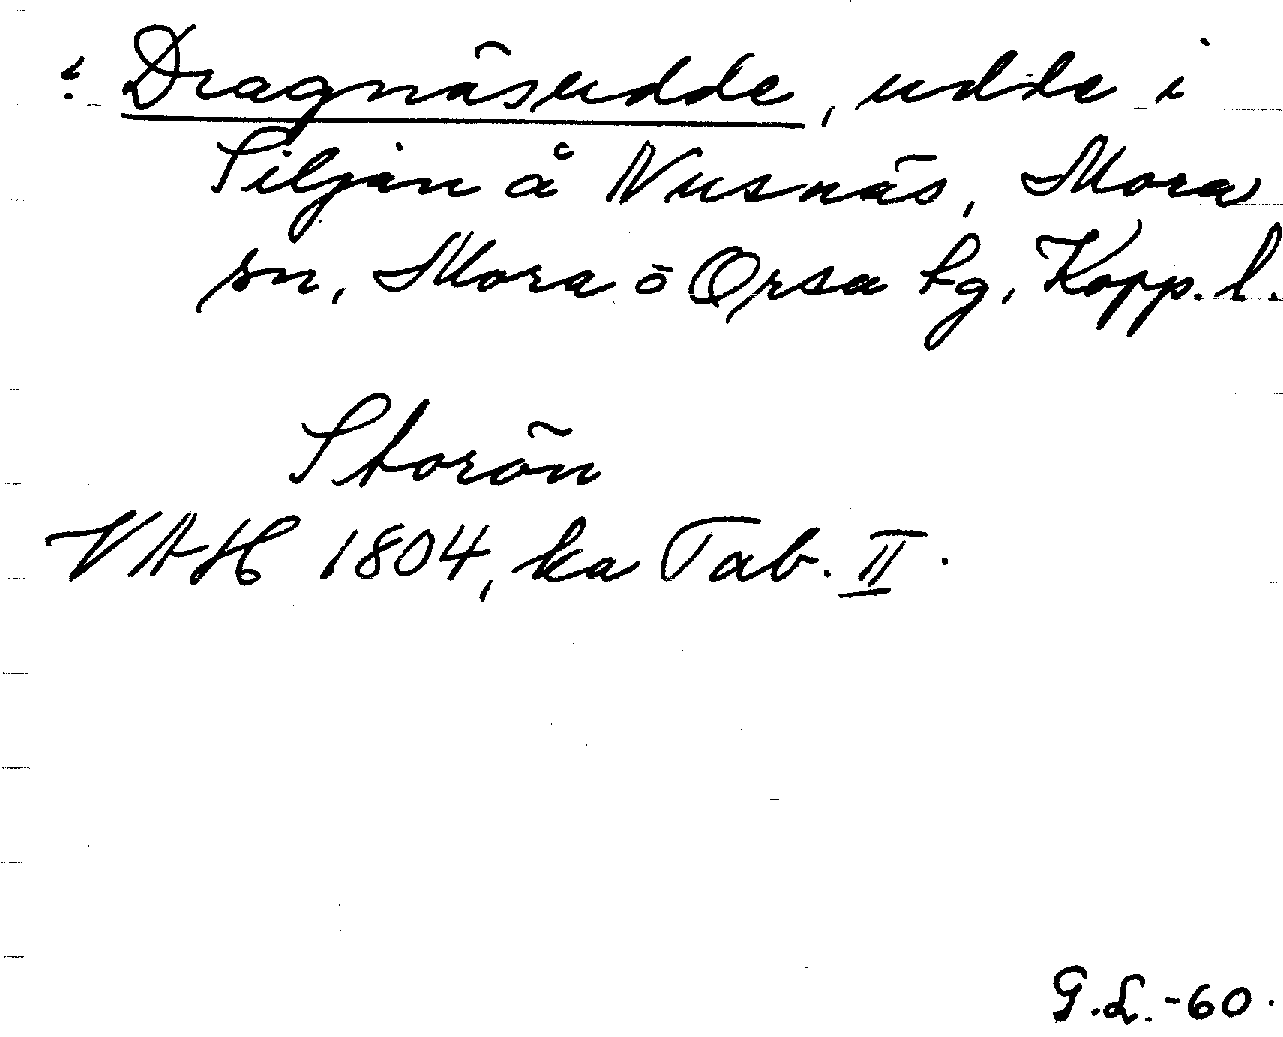 : Dragnäsudde, udde i
Siljan å Nusnäs, Mora
sn, Mora o Orsa tg, Kopp. l.
Storön
VAH 1804, ka Tab. II.
G.L.-60.